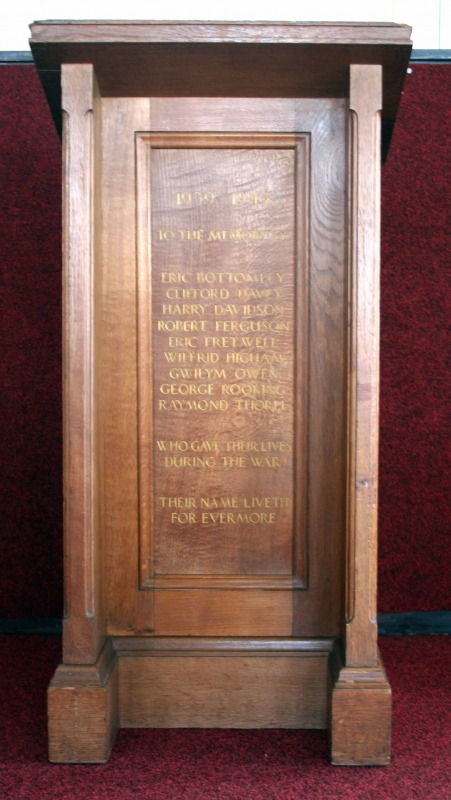 1939 1945
TO THE MEMORY OF
ERIC BOTTOMLEY
CLIFFORD DAVEY
HARRY DAVIDSON
ROBERT FERGUSON
ERIC FRETWELL
WILFRID HIGHAM
GWILYM OWEN
GEORGE ROOKING
RAYMOND THORPE
WHO GAVE THEIR LIVES
DURING THE WAR
THEIR NAME LIVETH
FOR EVERMORE